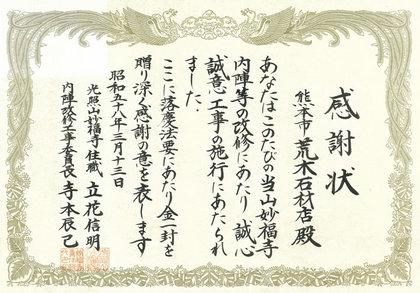 感謝状
熊本市 荒木石材店 殿
あなたはこのたびの当山妙福寺
内陣等の改修にあたり、誠心
誠意工事の施行にあたられ
ました、
ここに落慶法要にあたり金一封を
贈り深く感謝の意を表します
昭和五十八年三月十三日
光照山妙福寺住職 立花信明
内陣改修工事委員長 寺本辰己